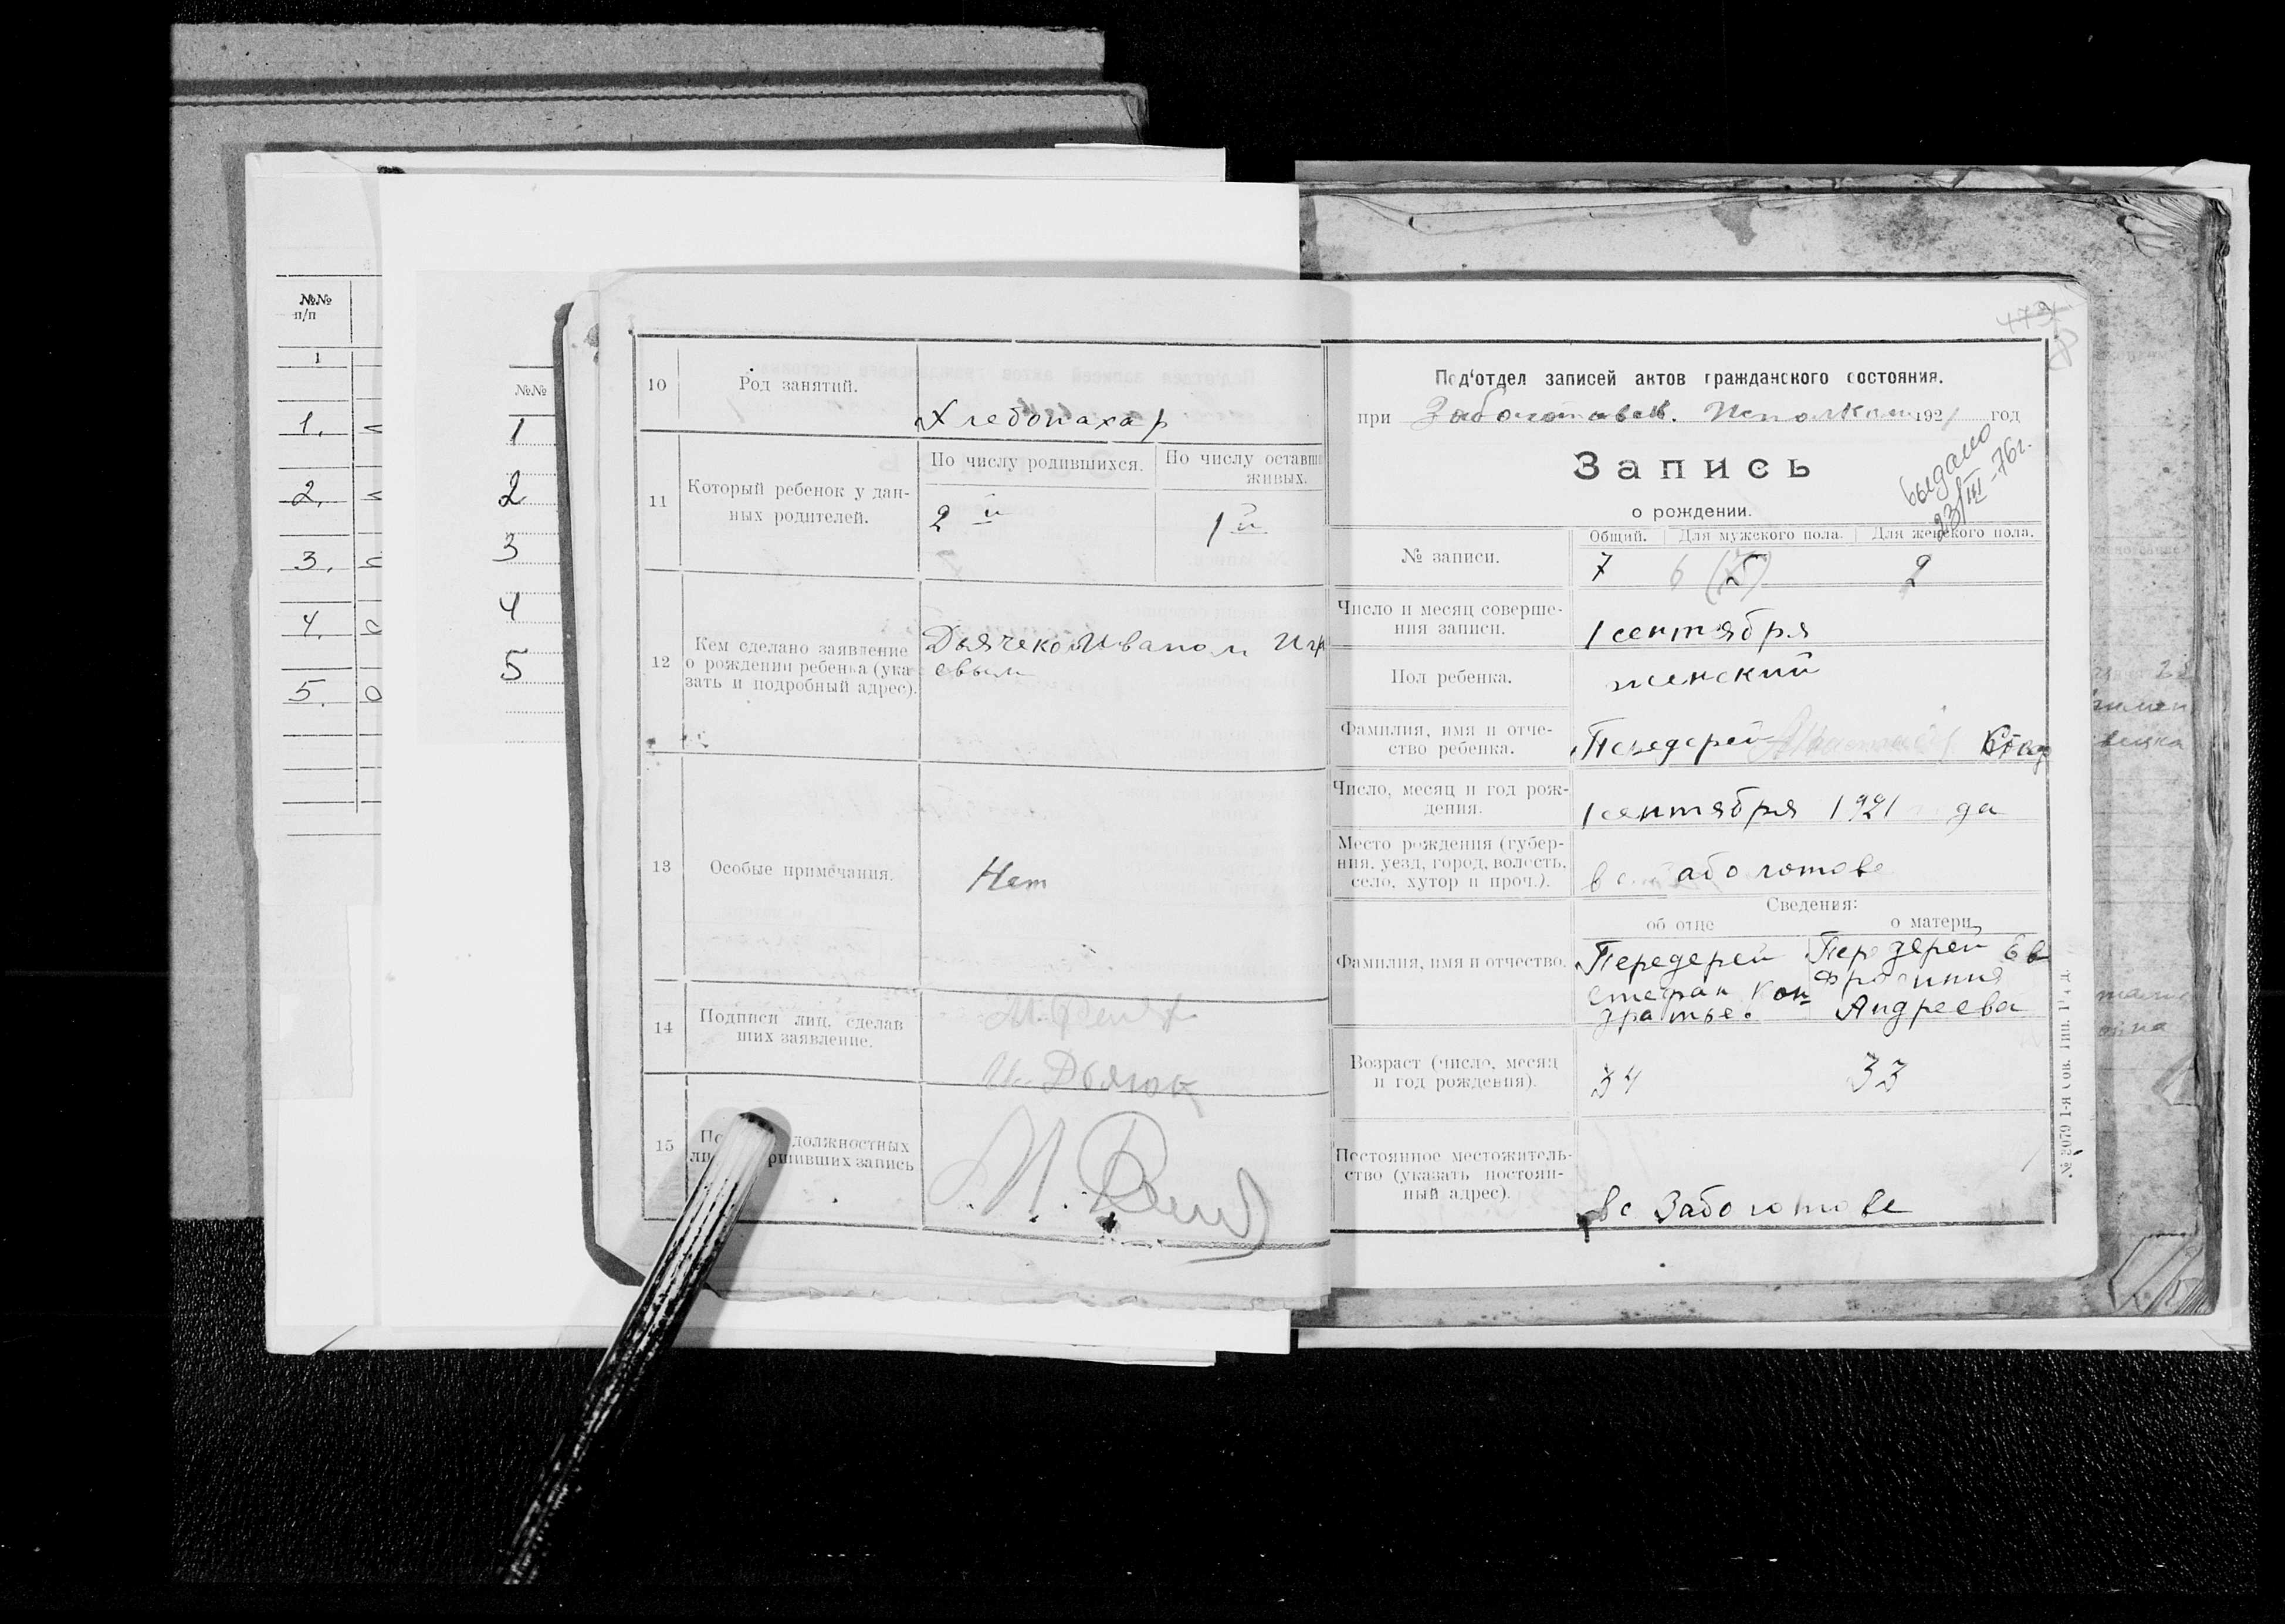 №№
п/п
1
1.
2.
3.
4.
5.
№№
1
2
3
4
5
10
Род занятий.
Хлебопахар
11
Который ребенок у дан-
ных родителей.
По числу родившихся.
По числу оставш
живых.
2й
1й
12
Кем сделано заявление
о рождении ребенка (ука-
зать и подробный адрес).
Иваном
евым
13
Особые примечания.
Нет
14
Подписи лиц, сделав
ших заявление.
15
должностных
ршивших запись
473
Под'отдел записей актов гражданского состояния.
при Заболотовск. Исполком 1921 год
Запись
о рождении.
выдано
23/III-76г.
№ записи.
Общий.
Для мужского пола.
Для женского пола.
7
6 (5)
2
Число и месяц соверше-
ния записи.
1 сентября
Пол ребенка.
женский
Фамилия, имя и отче-
ство ребенка.
Передерей
Число, месяц и год рож-
дения.
1 сентября 1921 да
Место рождения (губер-
ния, уезд, город, волость,
село, хутор и проч.).
в с аболотове
Сведения:
об отце
о матери
Фамилия, имя и отчество.
Передерей
Стефан Кон
дратье.
Передерей Ев
фросиния
Андреева
Возраст (число, месяц
и год рождения).
34
33
Постоянное местожитель-
ство (указать постоян-
ный адрес).
в с Заболотове
№ 3079 1-я Сов. Тип. Р/Д.